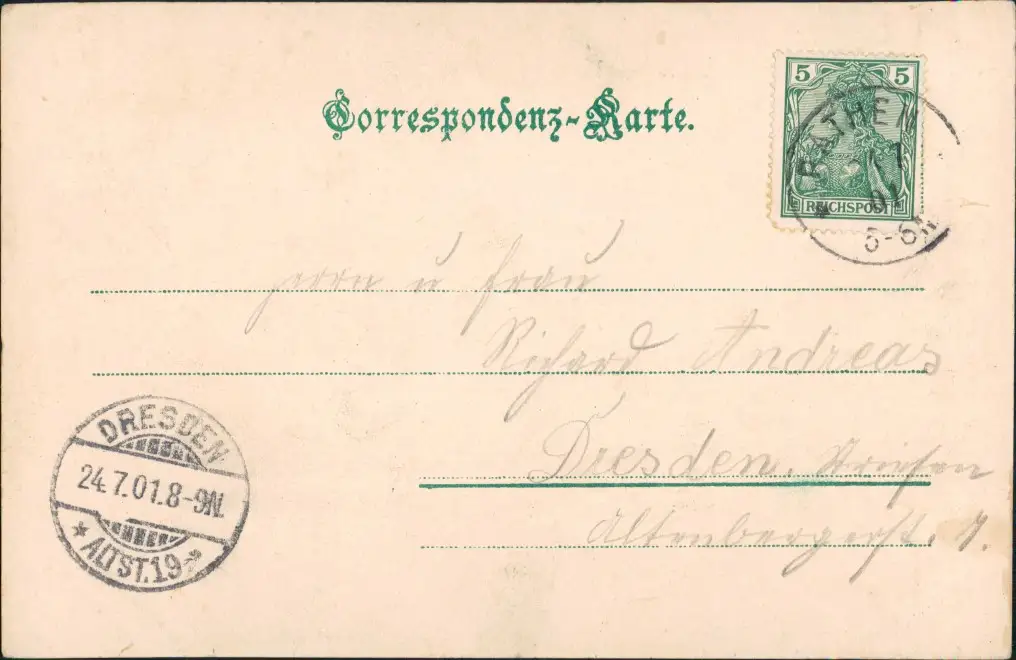 Correspondenz-Karte.
5 5
REICHSPOST
RATHEN
7
01
5-6N
Herrn u Frau
Richard Andreas
Dresden. Striesen
Altenbergerst. 7.
DRESDEN
24.7.01.8-9N.
* ALTST.19 *